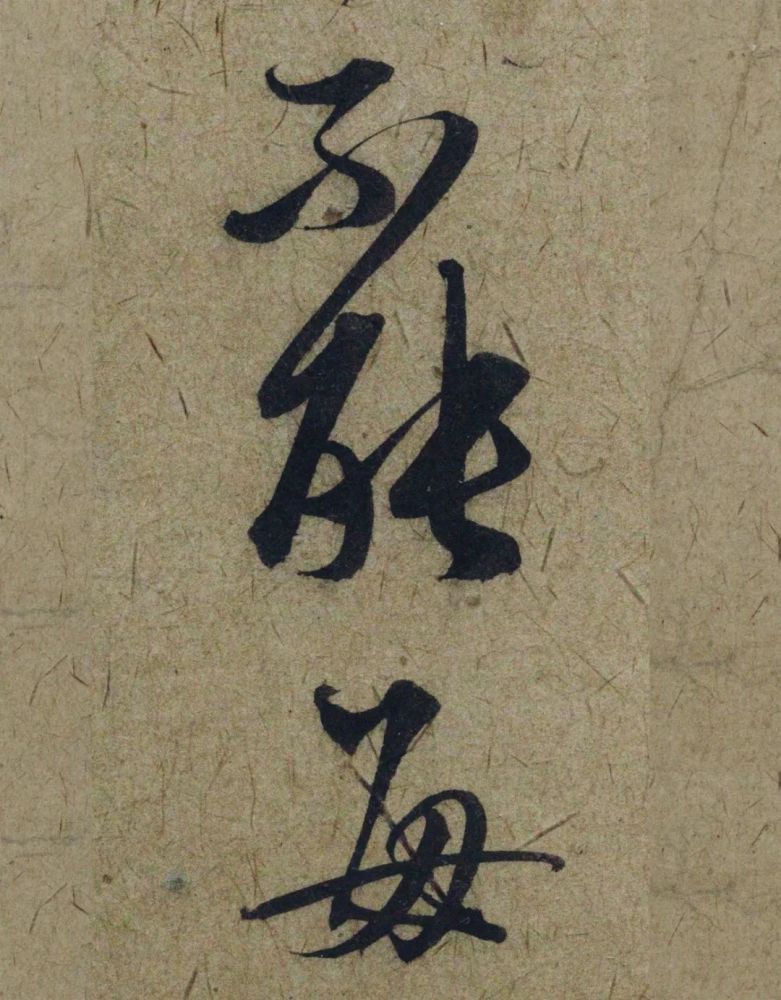 不能每